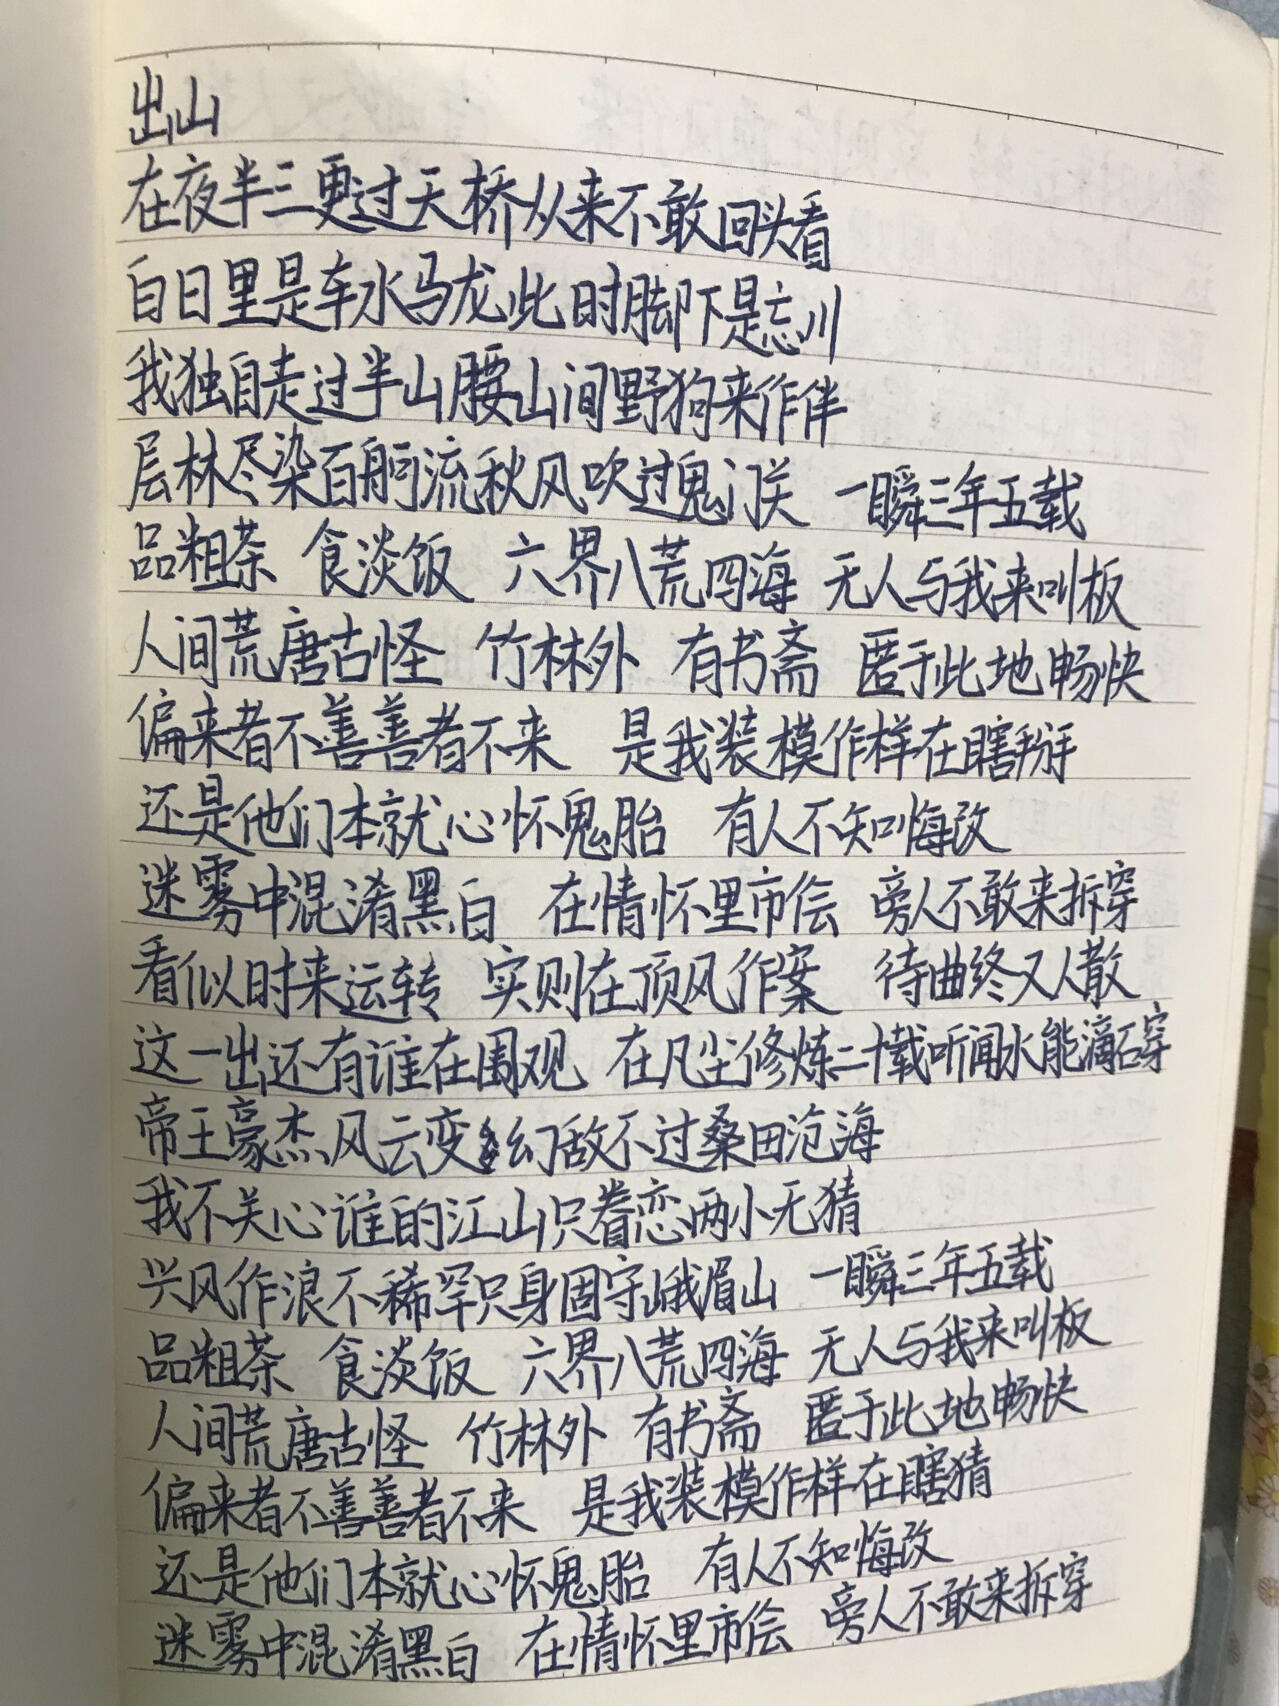 出山
在夜半三更过天桥从来不敢回头看
白日里是车水马龙此时脚下是忘川
我独自走过半山腰山间野狗来作伴
层林尽染百舸流秋风吹过鬼门关 一瞬三年五载
品粗茶 食淡饭 六界八荒四海 无人与我来叫板
人间荒唐古怪 竹林外 有书斋 匿于此地畅快
偏来者不善善者不来 是我装模作样在瞎掰
还是他们本就心怀鬼胎 有人不知悔改
迷雾中混淆黑白 在情怀里市侩 旁人不敢来拆穿
看似时来运转 实则在顶风作案 待曲终又人散
这一出还有谁在围观 在凡尘修炼二十载听闻水能滴石穿
帝王豪杰风云变幻敌不过桑田沧海
我不关心谁的江山只眷恋两小无猜
兴风作浪不稀罕只身固守峨眉山 一瞬三年五载
品粗茶 食淡饭 六界八荒四海 无人与我来叫板
人间荒唐古怪 竹林外 有书斋 匿于此地畅快
偏来者不善善者不来 是我装模作样在瞎猜
还是他们本就心怀鬼胎 有人不知悔改
迷雾中混淆黑白 在情怀里市侩 旁人不敢来拆穿